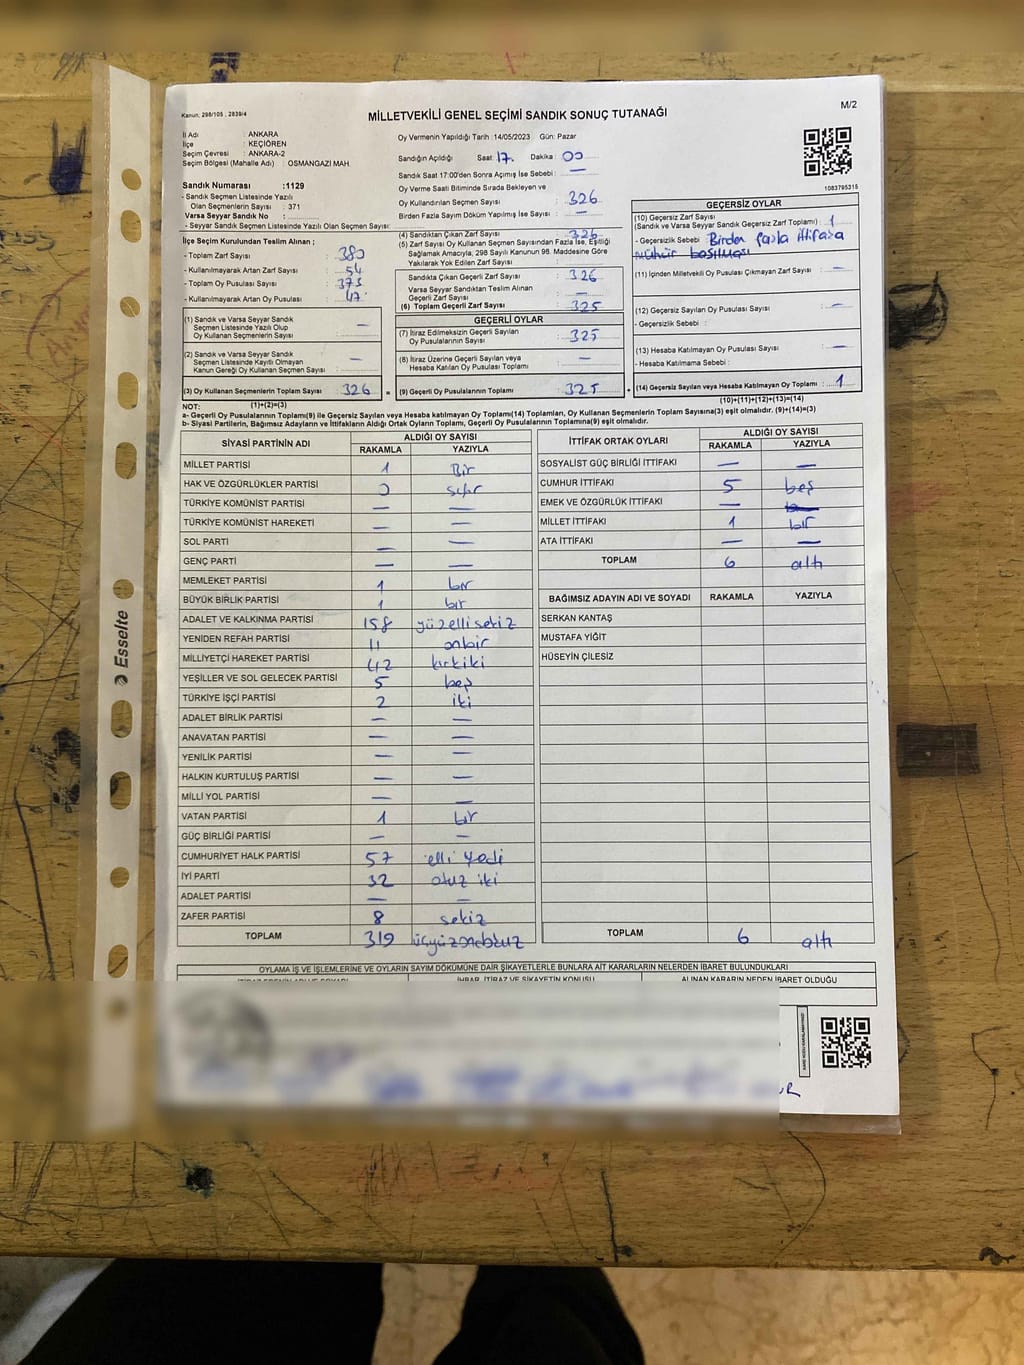 Kanun: 298/105 , 2839/4
MİLLETVEKİLİ GENEL SEÇİMİ SANDIK SONUÇ TUTANAĞI
M/2
İl Adı : ANKARA
İlçe : KEÇİÖREN
Seçim Çevresi : ANKARA-2
Seçim Bölgesi (Mahalle Adı) : OSMANGAZİ MAH.
Sandık Numarası :1129
- Sandık Seçmen Listesinde Yazılı
Olan Seçmenlerin Sayısı : 371
Varsa Seyyar Sandık No :
- Seyyar Sandık Seçmen Listesinde Yazılı Olan Seçmen Sayısı:
Oy Vermenin Yapıldığı Tarih :14/05/2023 Gün: Pazar
Sandığın Açıldığı Saat: 17. Dakika : 00
Sandık Saat 17:00'den Sonra Açımış İse Sebebi : —
Oy Verme Saati Bitiminde Sırada Bekleyen ve
Oy Kullandırılan Seçmen Sayısı : 326
Birden Fazla Sayım Döküm Yapılmış İse Sayısı : —
1083795315
İlçe Seçim Kurulundan Teslim Alınan ;
- Toplam Zarf Sayısı : 380
- Kullanılmayarak Artan Zarf Sayısı : 54
- Toplam Oy Pusulası Sayısı : 373
- Kullanılmayarak Artan Oy Pusulası : 47
(1) Sandık ve Varsa Seyyar Sandık
Seçmen Listesinde Yazılı Olup
Oy Kullanan Seçmenlerin Sayısı : —
(2) Sandık ve Varsa Seyyar Sandık
Seçmen Listesinde Kayıtlı Olmayan
Kanun Gereği Oy Kullanan Seçmen Sayısı : —
(3) Oy Kullanan Seçmenlerin Toplam Sayısı : 326 =
(4) Sandıktan Çıkan Zarf Sayısı : 326
(5) Zarf Sayısı Oy Kullanan Seçmen Sayısından Fazla İse, Eşitliği
Sağlamak Amacıyla; 298 Sayılı Kanunun 98. Maddesine Göre
Yakılarak Yok Edilen Zarf Sayısı :
Sandıkta Çıkan Geçerli Zarf Sayısı : 326
Varsa Seyyar Sandıktan Teslim Alınan
Geçerli Zarf Sayısı : —
(6) Toplam Geçerli Zarf Sayısı : 325
GEÇERLİ OYLAR
(7) İtiraz Edilmeksizin Geçerli Sayılan
Oy Pusulalarının Sayısı : 325
(8) İtiraz Üzerine Geçerli Sayılan veya
Hesaba Katılan Oy Pusulası Toplamı : —
(9) Geçerli Oy Pusulalarının Toplamı : 325 +
GEÇERSİZ OYLAR
(10) Geçersiz Zarf Sayısı
(Sandık ve Varsa Seyyar Sandık Geçersiz Zarf Toplamı) : 1
- Geçersizlik Sebebi : Birden fazla ittifaka
mühür basılması
(11) İçinden Milletvekili Oy Pusulası Çıkmayan Zarf Sayısı : —
(12) Geçersiz Sayılan Oy Pusulası Sayısı : —
- Geçersizlik Sebebi :
(13) Hesaba Katılmayan Oy Pusulası Sayısı : —
- Hesaba Katılmama Sebebi :
(14) Geçersiz Sayılan veya Hesaba Katılmayan Oy Toplamı : 1
(10)+(11)+(12)+(13)=(14)
NOT: (1)+(2)=(3)
a- Geçerli Oy Pusulalarının Toplamı(9) ile Geçersiz Sayılan veya Hesaba katılmayan Oy Toplamı(14) Toplamları, Oy Kullanan Seçmenlerin Toplam Sayısına(3) eşit olmalıdır. (9)+(14)=(3)
b- Siyasi Partilerin, Bağımsız Adayların ve İttifakların Aldığı Ortak Oyların Toplamı, Geçerli Oy Pusulalarının Toplamına(9) eşit olmalıdır.
SİYASİ PARTİNİN ADI ALDIĞI OY SAYISI
RAKAMLA YAZIYLA
MİLLET PARTİSİ 1 Bir
HAK VE ÖZGÜRLÜKLER PARTİSİ 0 sıfır
TÜRKİYE KOMÜNİST PARTİSİ — —
TÜRKİYE KOMÜNİST HAREKETİ — —
SOL PARTİ — —
GENÇ PARTİ — —
MEMLEKET PARTİSİ 1 bir
BÜYÜK BİRLİK PARTİSİ 1 bir
ADALET VE KALKINMA PARTİSİ 158 yüzellisekiz
YENİDEN REFAH PARTİSİ 11 onbir
MİLLİYETÇİ HAREKET PARTİSİ 42 kırkiki
YEŞİLLER VE SOL GELECEK PARTİSİ 5 beş
TÜRKİYE İŞÇİ PARTİSİ 2 iki
ADALET BİRLİK PARTİSİ — —
ANAVATAN PARTİSİ — —
YENİLİK PARTİSİ — —
HALKIN KURTULUŞ PARTİSİ — —
MİLLİ YOL PARTİSİ — —
VATAN PARTİSİ 1 bir
GÜÇ BİRLİĞİ PARTİSİ — —
CUMHURİYET HALK PARTİSİ 57 elli yedi
İYİ PARTİ 32 otuz iki
ADALET PARTİSİ — —
ZAFER PARTİSİ 8 sekiz
TOPLAM 319 üçyüzondokuz
İTTİFAK ORTAK OYLARI ALDIĞI OY SAYISI
RAKAMLA YAZIYLA
SOSYALİST GÜÇ BİRLİĞİ İTTİFAKI — —
CUMHUR İTTİFAKI 5 beş
EMEK VE ÖZGÜRLÜK İTTİFAKI —
MİLLET İTTİFAKI 1 bir
ATA İTTİFAKI — —
TOPLAM 6 altı
BAĞIMSIZ ADAYIN ADI VE SOYADI RAKAMLA YAZIYLA
SERKAN KANTAŞ
MUSTAFA YİĞİT
HÜSEYİN ÇİLESİZ
TOPLAM 6 altı
OYLAMA İŞ VE İŞLEMLERİNE VE OYLARIN SAYIM DÖKÜMÜNE DAİR ŞİKAYETLERLE BUNLARA AİT KARARLARIN NELERDEN İBARET BULUNDUKLARI
İHBAR, İTİRAZ VE ŞİKAYETİN KONUSU ALINAN KARARIN NEDEN İBARET OLDUĞU
Esselte